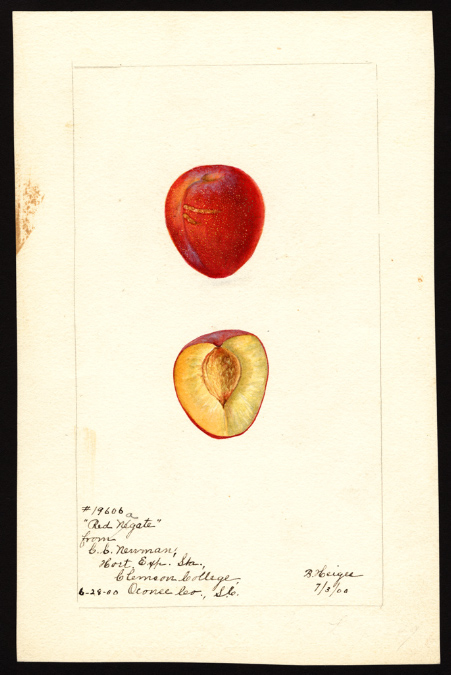 #19606a
"Red Nagate"
from
C.C. Newman,
Hort. Exp. Sta.,
Clemson College,
6-28-00 Oconee Co., S.C.
B. Heiges
7/3/00